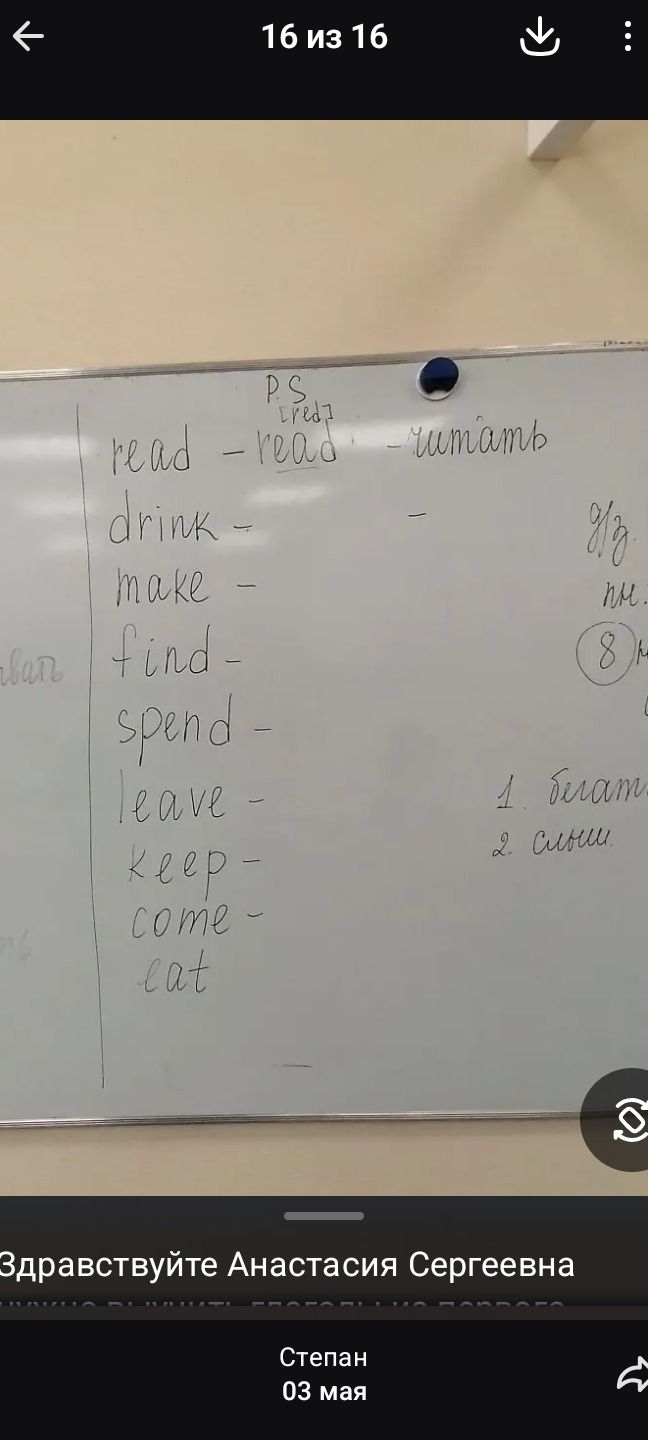 16 из 16
P.S
[red]
read - read - читать
drink - -
make -
find -
spend -
leave -
keep -
come -
eat
д/з.
пн.
8
1. бегат
2. слыш.
Здравствуйте Анастасия Сергеевна
нужно выучить глаголы из первого
Степан
03 мая